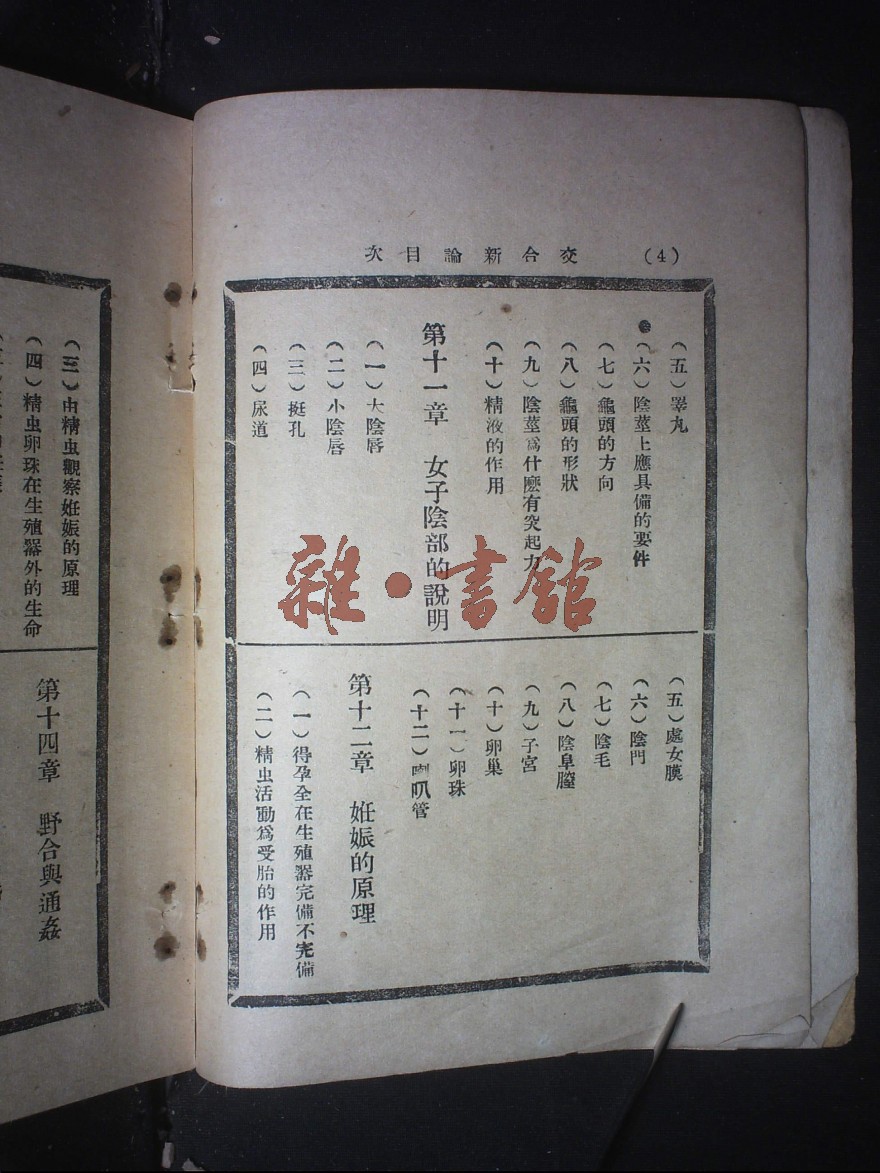 (4) 交合新論目次
(五)睪丸
(六)陰莖上應具備的要件
(七)龜頭的方向
(八)龜頭的形狀
(九)陰莖爲什麽有突起力
(十)精液的作用
第十一章 女子陰部的說明
(一)大陰唇
(二)小陰唇
(三)挺孔
(四)尿道
(五)處女膜
(六)陰門
(七)陰毛
(八)陰阜膣
(九)子宮
(十)卵巢
(十一)卵珠
(十二)喇叭管
第十二章 姙娠的原理
(一)得孕全在生殖器完備不完備
(二)精虫活動爲受胎的作用
(三)由精虫觀察姙娠的原理
(四)精虫卵珠在生殖器外的生命
第十四章 野合與通姦
雜·書舘